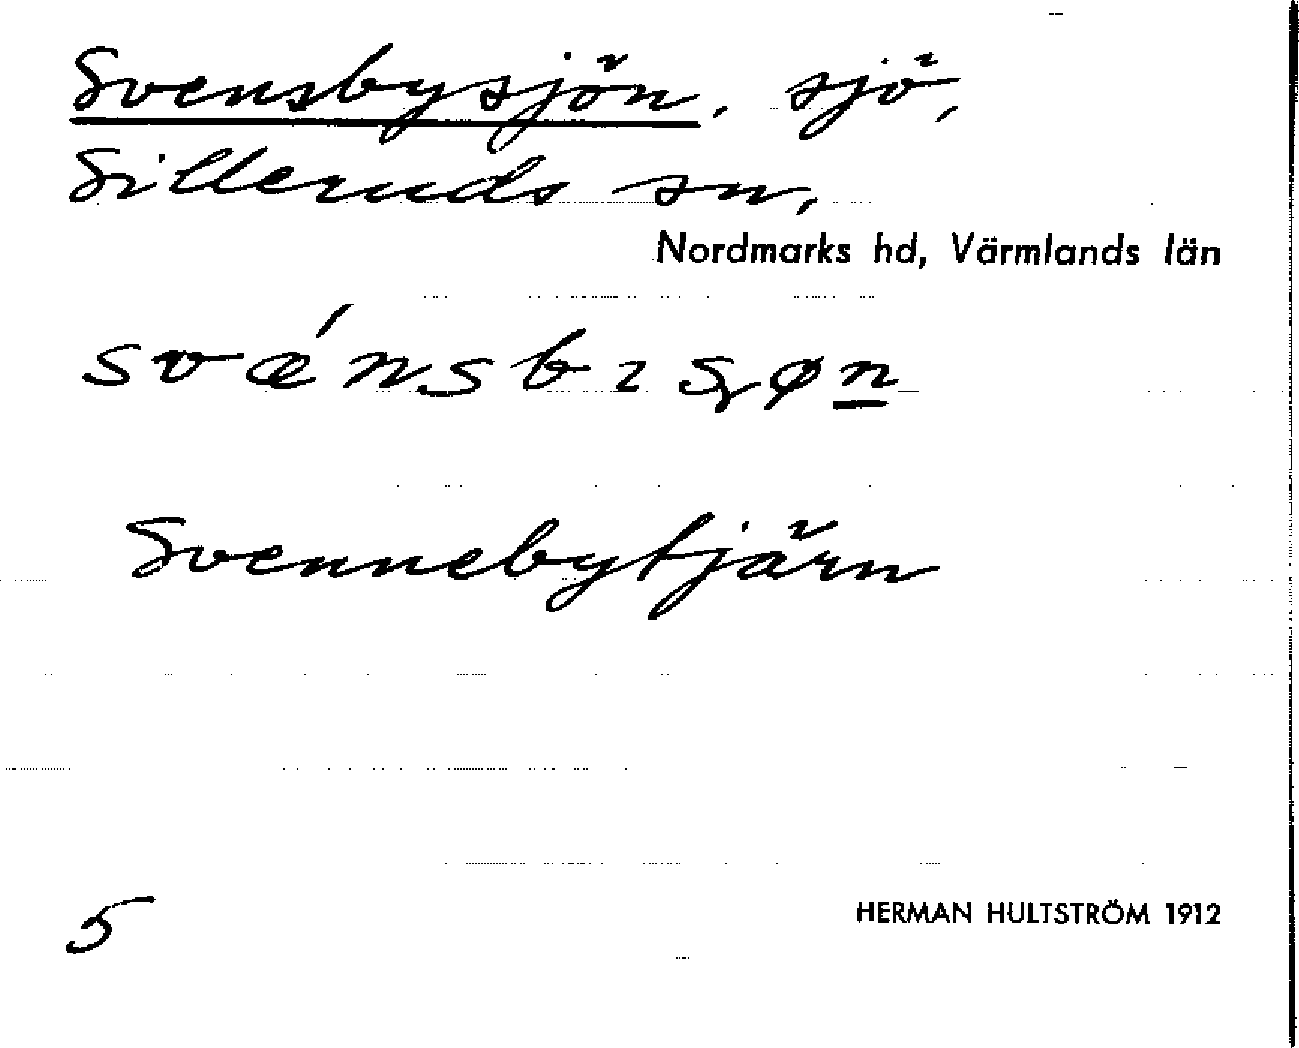 Svensbysjön, sjö,
Silleruds sn,
Nordmarks hd, Värmlands län
svǽnsbɿʂøn
Svennebytjärn
5
HERMAN HULTSTRÖM 1912